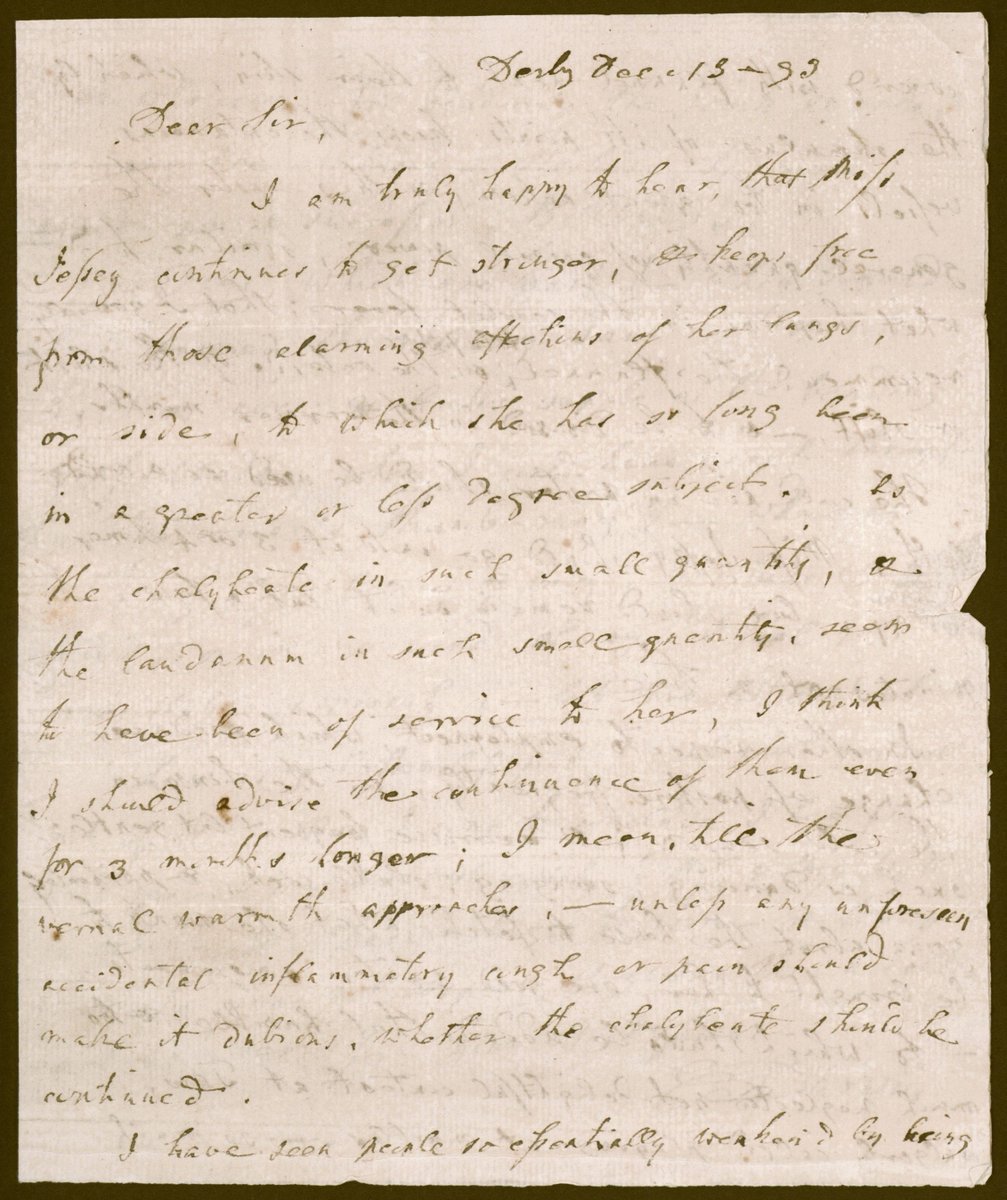 Derby Dec. 13 – 93
Dear Sir,
I am truly happy to hear, that Miſs
Jeſsey continues to get stronger, & keeps free
from those alarming affections of her lungs,
or side, to which she has so long been
in a greater or leſs degree subject. As
the chalybeate in such small quantity, &
the laudanum in such small quantity, seem
to have been of service to her, I think
I should advise the continuence of them even
for 3 months longer; I mean, till the
vernal warmth approaches; — unleſs any unforeseen
accidental inflammatory cough or pain should
make it dubious, whether the chalybeate should be
continued.
I have seen people so eſsentially weaken'd by being